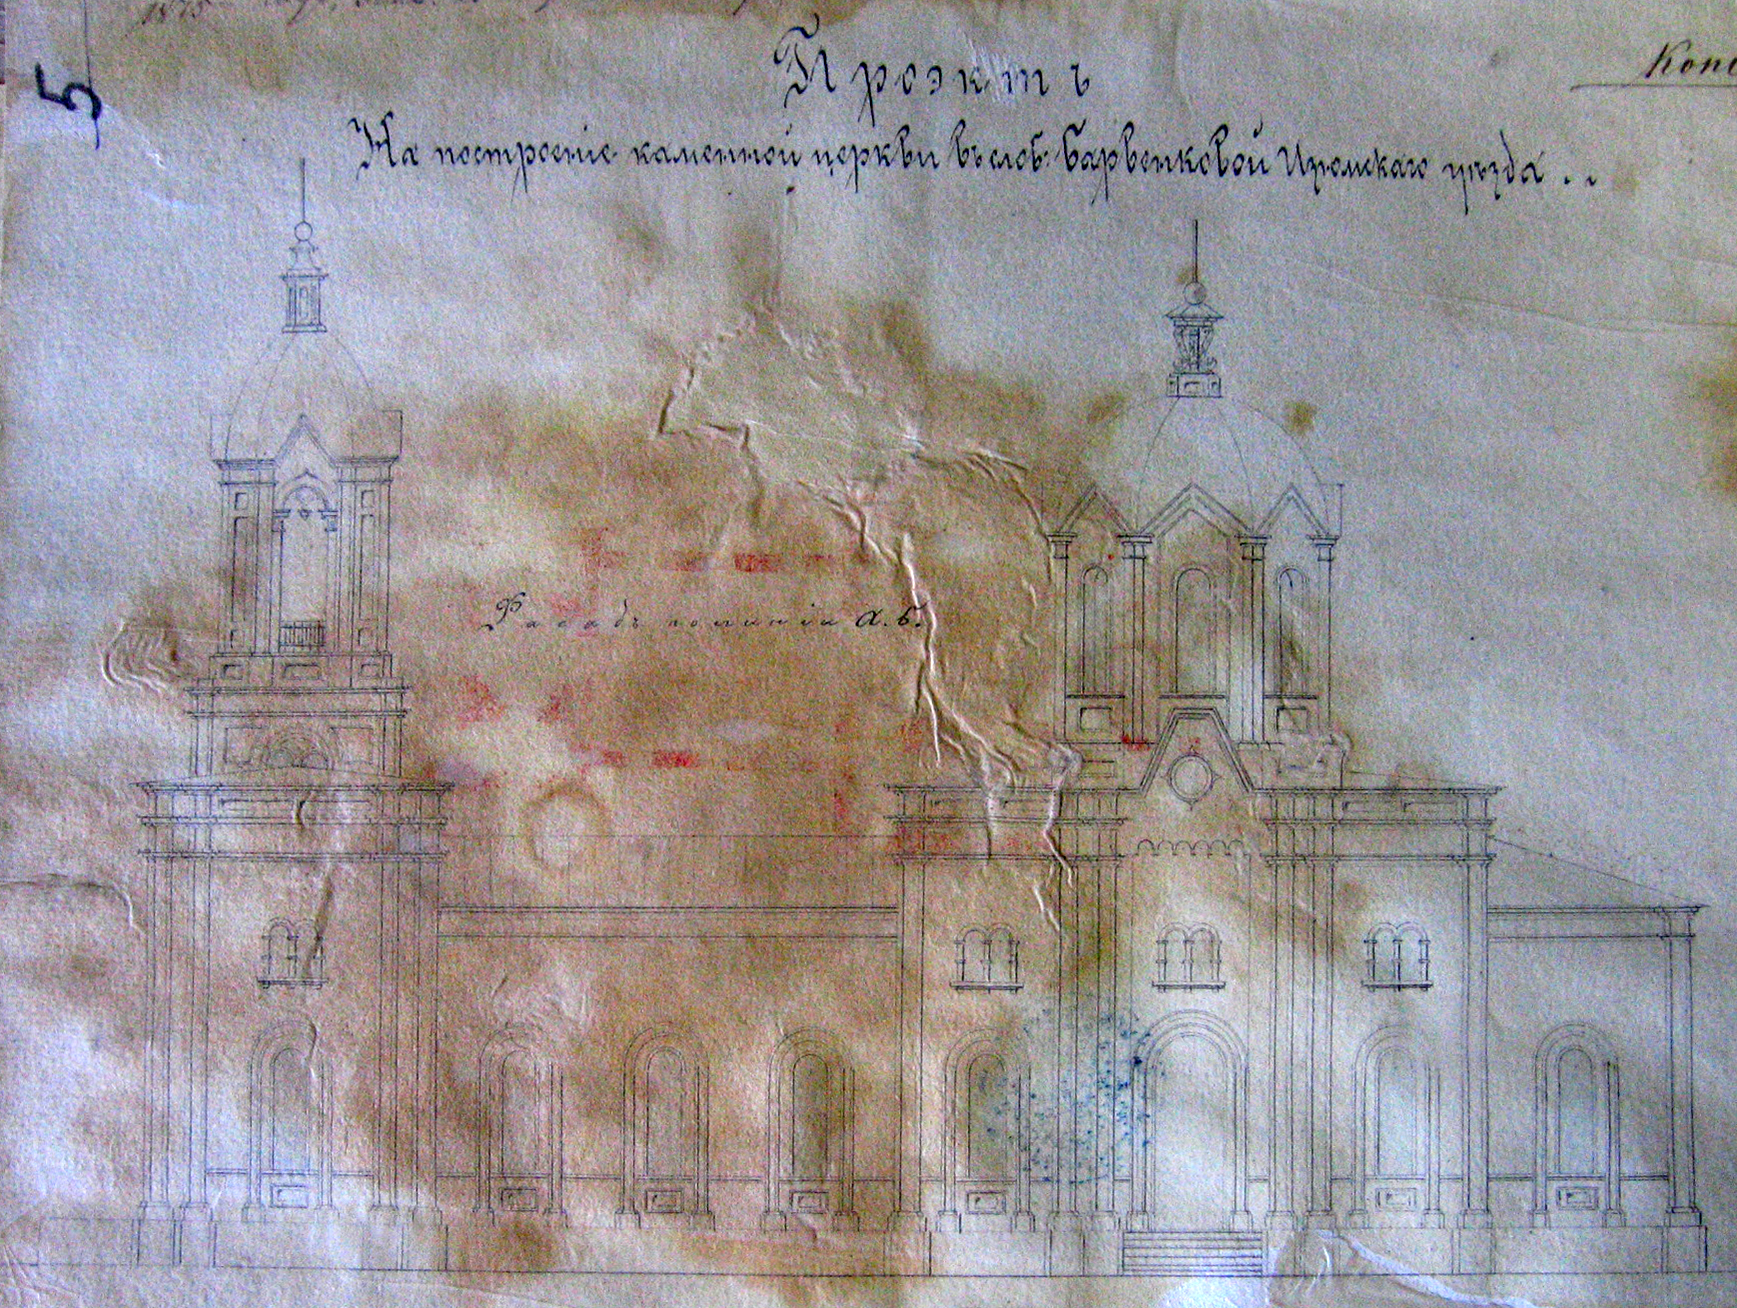 1875
5
Копі
Проэктъ
На построеніе каменной церкви въ слоб: Барвенковой Изюмскаго уѣзда . .
Фасадъ по линіи А. Б.